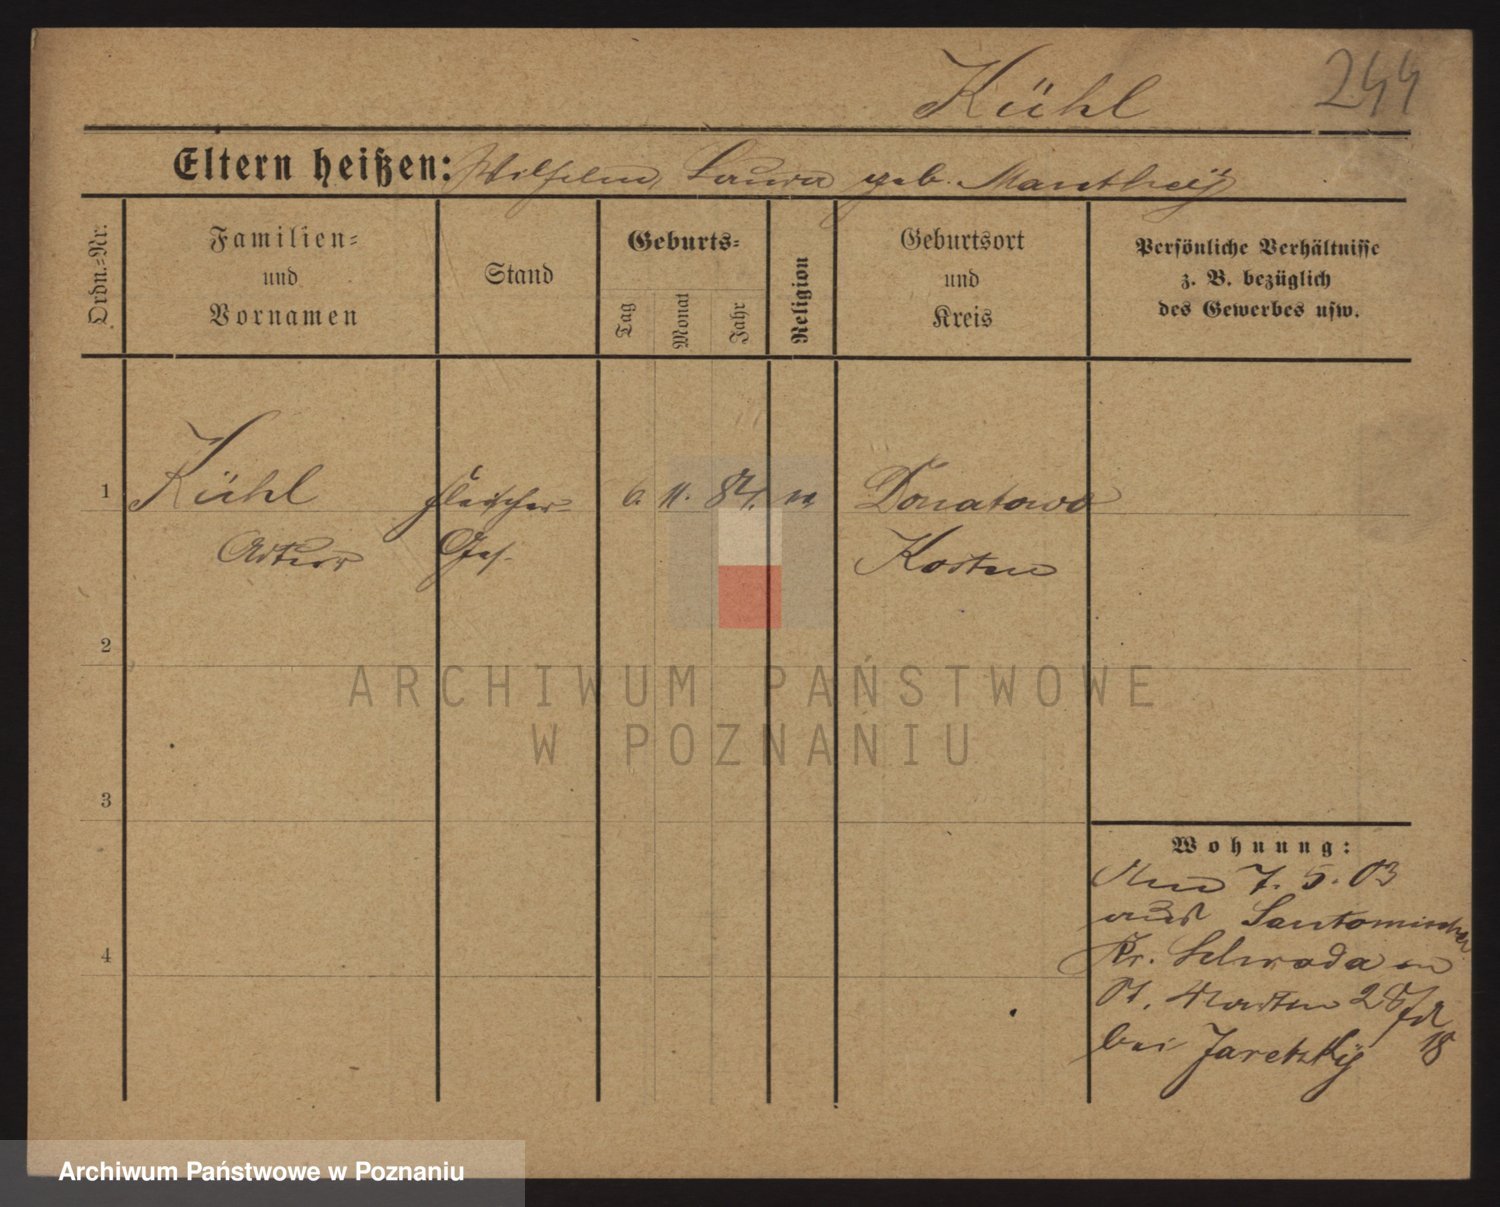 244
Kühl
Eltern heißen: Wilhelm, Laura geb. Manthey
Ordn.-Nr.
Familien-
und
Vornamen
Stand
Geburts-
Tag
Monat
Jahr
Religion
Geburtsort
und
Kreis
Persönliche Verhältnisse
z. B. bezüglich
des Gewerbes usw.
1 Kühl Fleischer- 6. 11. 84. Donatowo
Artur Ges. Kosten
2
3
4
Wohnung:
7. 5. 03
aus Santomischel
Kr. Schroda
St. Martin 28
bei Jaretzky 18
ARCHIWUM PAŃSTWOWE
W POZNANIU
Archiwum Państwowe w Poznaniu